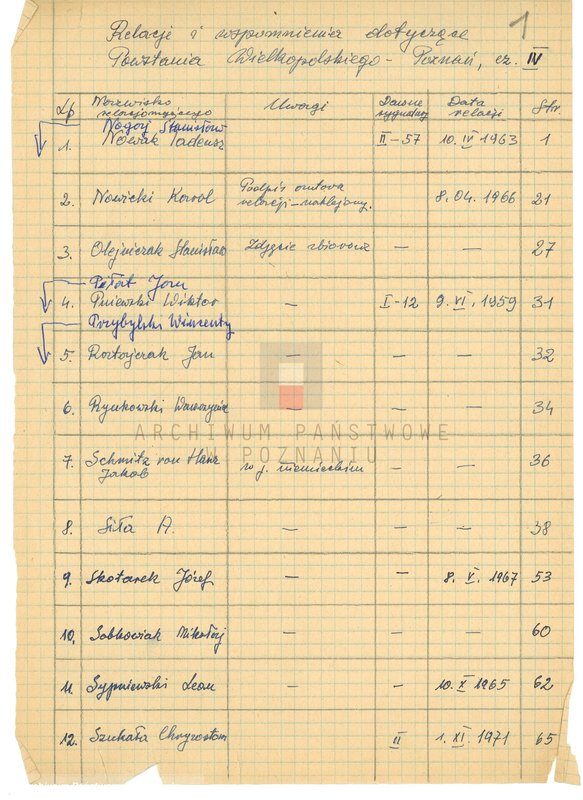 1
Relacje i wspomnienia dotyczące
Powstania Wielkopolskiego - Poznań, cz. IV
Lp Nazwisko relacjonującego Uwagi Dawne sygnatury Data relacji Str
Nogaj Stanisław
1. Nowak Tadeusz II-57 10. IV 1963 1
2. Nowicki Karol Podpis autora relacji - naklejony. 8.04. 1966 21
3. Olejniczak Stanisław Zdjęcie zbiorowe — — 27
Jan
4. Pniewski Wiktor — I-12 9. VI. 1959 31
Przybylski Wincenty
5. Ratajczak Jan — — — 32
6. Rynkowski Wawrzyniec — — — 34
7. Schmitz von Hans Jakob w j. niemieckim — — 36
8. Siła A. — — — 38
9. Skotarek Józef — — 8. V. 1967 53
10. Sobkowiak Mikołaj — — — 60
11. Sypniewski Leon — — 10. X 1965 62
12. Szukała Chryzostom II 1. XI. 1971 65
ARCHIWUM PAŃSTWOWE
W POZNANIU